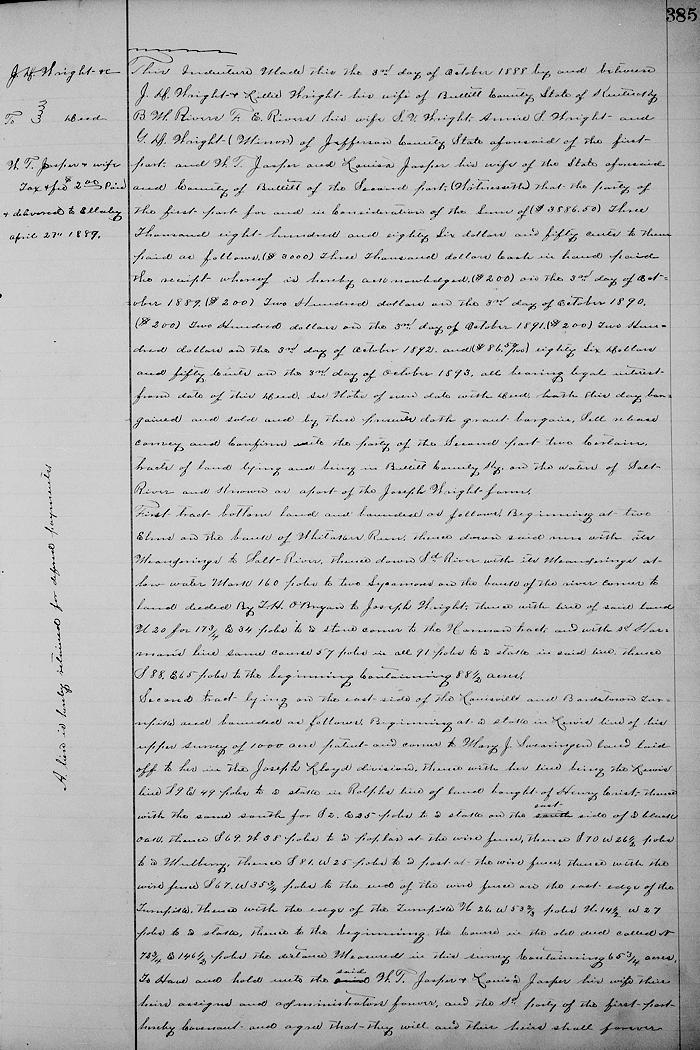 385
J. H. Wright &c
To Deed
W. T. Jasper & wife
Tax & fee $2.00 Paid
& delivered to
April 27th 1889.
A lien is hereby retained for defered payments
This Indenture Made this the 3rd day of October 1888 by and between
J. H. Wright & Lellie Wright his wife of Bullitt County State of Kentucky
B. M. Rivers F. E. Rivers his wife S. V. Wright Annie S. Wright and
G. H. Wright (Minor) of Jefferson County State aforesaid of the first
part, and W. T. Jasper and Louisa Jasper his wife of the State aforesaid
and County of Bullitt of the Second part, (Witnesseth) that the party of
the first part for and in Consideration of the Sum of ($3886.50) Three
Thousand eight hundred and eighty Six dollars and fifty cents to them
paid as follows, ($3000) Three Thousand dollars Cash in hand paid
the receipt whereof is hereby acknowledged, ($200) on the 3rd day of Oct-
ober 1889. ($200) Two Hundred dollars on the 3rd day of October 1890.
($200) Two Hundred dollars on the 3rd day of October 1891. ($200) Two Hun-
dred dollars on the 3rd day of October 1892. and ($86.50/100) eighty Six Dollars
and fifty Cents on the 3rd day of October 1893, all bearing legal interest
from date of this Deed. see Note of even date with Deed, hath this day bar-
gained and sold and by these presents doth grant bargain, Sell release
convey and Confirm unto the party of the Second part two Certain
tracts of land lying and being in Bullitt County Ky. on the waters of Salt
River and Known as apart of the Joseph Wright farm,
First tract bottom land and bounded as follows, Beginning at two
Elms on the bank of Whitakers Run, thence down said run with its
Meanderings to Salt-River, thence down Sd River with its Meanderings at
low water Mark 160 poles to two Sycamores on the bank of the river corner to
land deeded By T. H. O'Bryan to Joseph Wright, thence with line of said land
N 20 for 17 3/4 E 34 poles to a stone corner to the Harman tract, and with sd Har-
man's line same course 57 poles in all 91 poles to a stake in said line, thence
S 88, E 65 poles to the beginning Containing 88 1/2 acres,
Second tract lying on the east side of the Louisville and Bardstown Turn-
pike and bounded as follows, Beginning at a stake in Lewis line of his
upper survey of 1000 acre patent and corner to Mary J. Swearingen land laid
off to her in the Joseph Lloyd division, thence with her line being the Lewis
line S 9 E 49 poles to a stake in Rolphs line of land bought of Henry Crist, thence
with the same south for S 2. E 25 poles to a stake on the south east side of a black
oak, thence S 69. W 38 poles to a poplar at the wire fence, thence S 70 W 26 1/2 poles
to a Mulberry, thence S 81. W 25 poles to a post at the wire fence, thence with the
wire fence S 67. W 35 3/4 poles to the end of the wire fence on the east edge of the
Turnpike, thence with the edge of the Turnpike N 26. W 53 2/3 poles N. 14 1/2 W 27
poles to a stake, thence to the beginning the Course in the old deed called N
73 3/4 E 146 1/2 poles the distance Measured in this survey Containing 65 3/4 acres,
To Have and hold unto the said W. T. Jasper & Louisa Jasper his wife their
heirs assigns and administrators forever, and the Sd party of the first part
hereby Covenant and agree that they will and their heirs shall forever